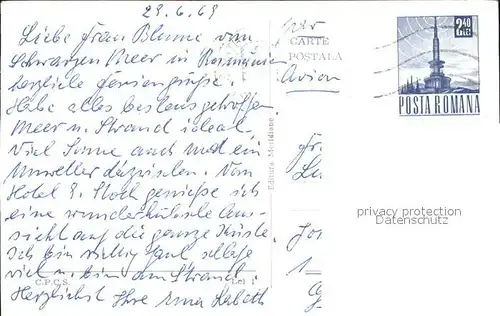 29.6.69
Liebe Frau Blume vom
Schwarzen Meer in Rumänien
herzliche Feriengrüße.
Habe alles bestens getroffen
Meer u. Strand ideal.
Viel Sonne auch mal ein
Unwetter dazwischen. Vom
Hotel 8. Stock genieße ich
eine wunderhübsche Aus-
sicht auf die ganze Küste.
Ich bin richtig faul schlafe
viel u. bin am Strand.
Herzlichst Ihre Erna
C.P.C.S. Lei 1
Editura Meridiane
per
CARTE
POSTALA
Avion
2,40
LEI
POSTA ROMANA
Fr.
privacy protection
Datenschutz